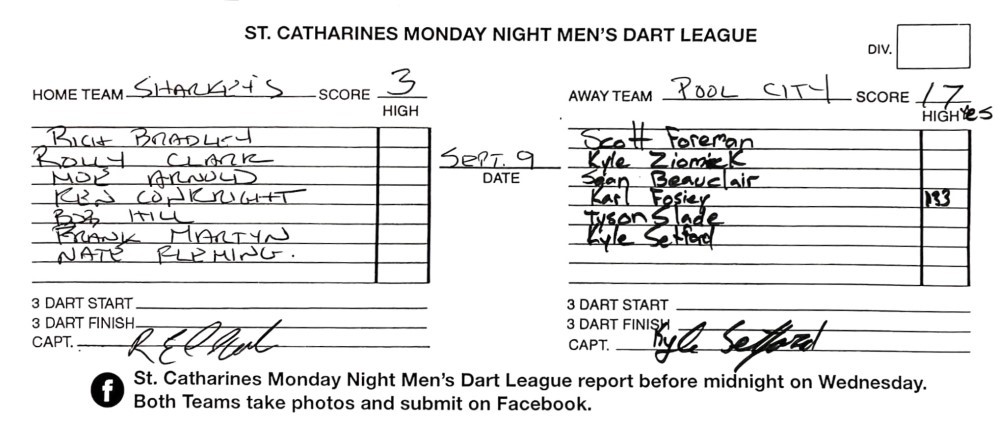 ST. CATHARINES MONDAY NIGHT MEN'S DART LEAGUE
DIV.
HOME TEAM SHARKEY'S SCORE 3
HIGH
AWAY TEAM POOL CITY SCORE 17
HIGH YES
RICH BRADLEY
ROLLY CLARK
MOE ARNOLD
KEN CONKRIGHT
BOB HILL
FRANK MARTYN
NATE FLEMING.
SEPT. 9
DATE
Scott Foreman
Kyle Ziomick
Sean Beauclair
Karl Fosiey 133
Tyson Slade
Kyle Setford
3 DART START
3 DART FINISH
CAPT.
3 DART START
3 DART FINISH
CAPT. Kyle Setford
St. Catharines Monday Night Men's Dart League report before midnight on Wednesday.
Both Teams take photos and submit on Facebook.